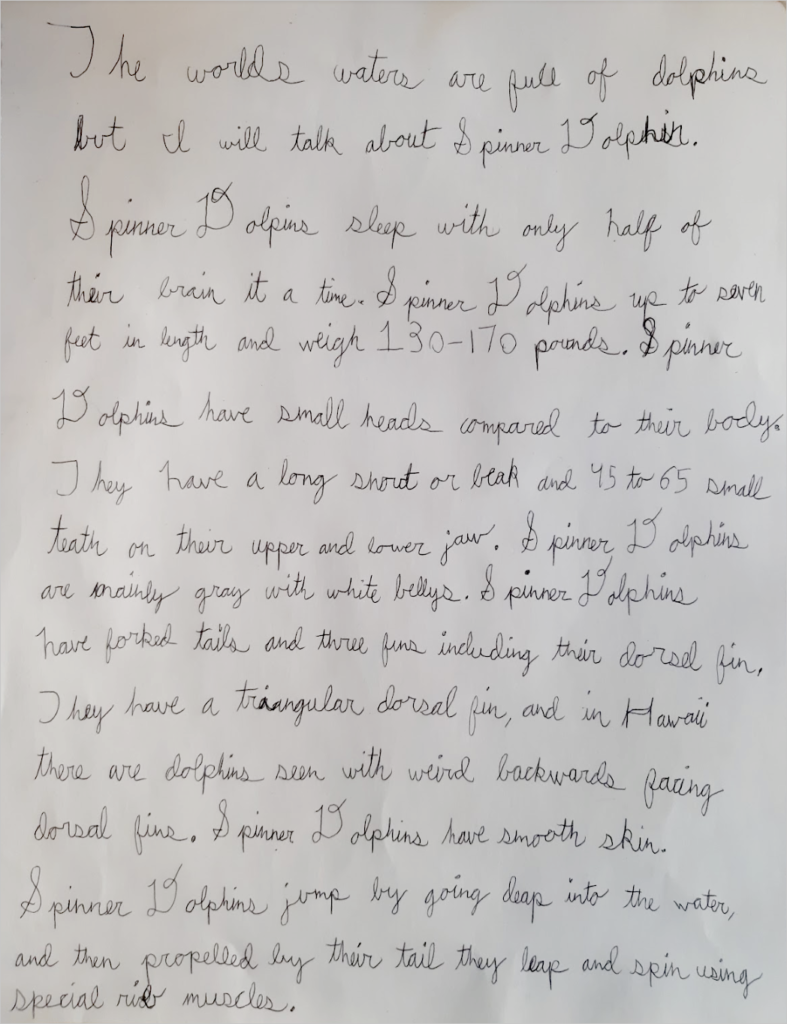 The worlds waters are full of dolphins
but I will talk about Spinner Dolphin.
Spinner Dolpins sleep with only half of
their brain it a time. Spinner Dolphins up to seven
feet in length and weigh 130-170 pounds. Spinner
Dolphins have small heads compared to their body.
They have a long shout or beak and 45 to 65 small
teath on their upper and lower jaw. Spinner Dolphins
are mainly gray with white bellys. Spinner Dolphins
have forked tails and three fins including their dorsel fin.
They have a triangular dorsal fin, and in Hawaii
there are dolphins seen with weird backwards facing
dorsal fins. Spinner Dolphins have smooth skin.
Spinner Dolphins jump by going deap into the water,
and then propelled by their tail they leap and spin using
special rib muscles.